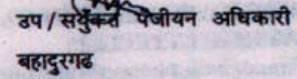 उप/सयुंकत पंजीयन अधिकारी
बहादुरगढ